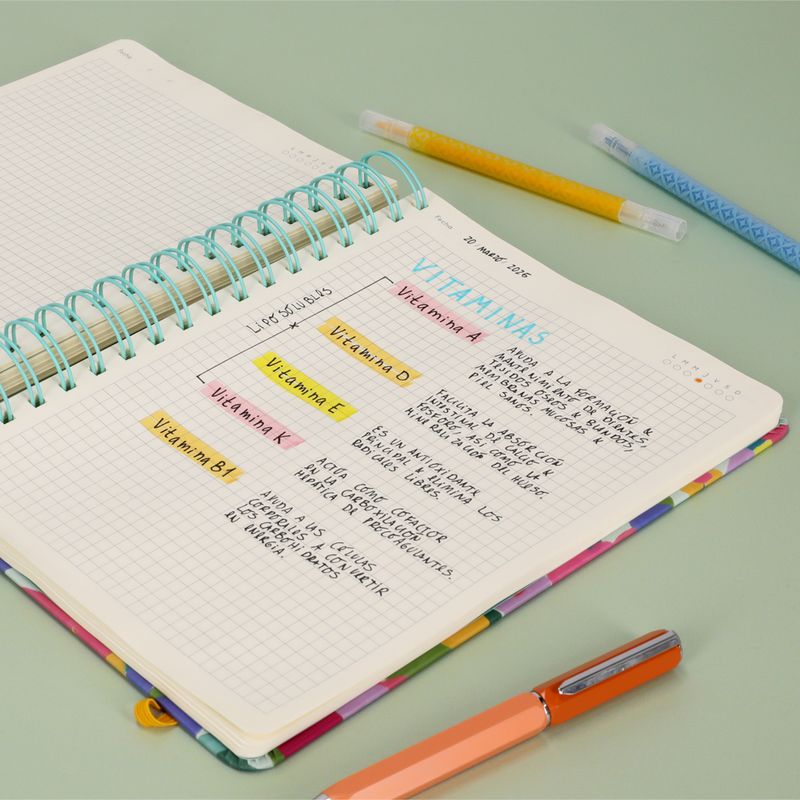 Fecha
L M M J V S
Fecha
20 MARZO 2026
L M M J V S D
VITAMINAS
LIPOSOLUBLES
*
Vitamina A
AYUDA A LA FORMACIÓN &
MANTENIMIENTO DE DIENTES,
TEJIDOS OSEOS & BLANDOS,
MEMBRANAS MUCOSAS &
PIEL SANOS.
Vitamina D
FACILITA LA ABSORCIÓN
INTESTINAL DE CALCIO &
FOSFORO ASI COMO LA
MINERALIZACIÓN DEL HUESO.
Vitamina E
ES UN ANTIOXIDANTE
PRINCIPAL & ELIMINA LOS
RADICALES LIBRES.
Vitamina K
ACTUA COMO COFACTOR
EN LA CARBOXILACIÓN
HEPÁTICA DE PROCOAGULANTES.
Vitamina B1
AYUDA A LAS CELULAS
CORPORALES A CONVERTIR
LOS CARBOHIDRATOS
EN ENERGIA.